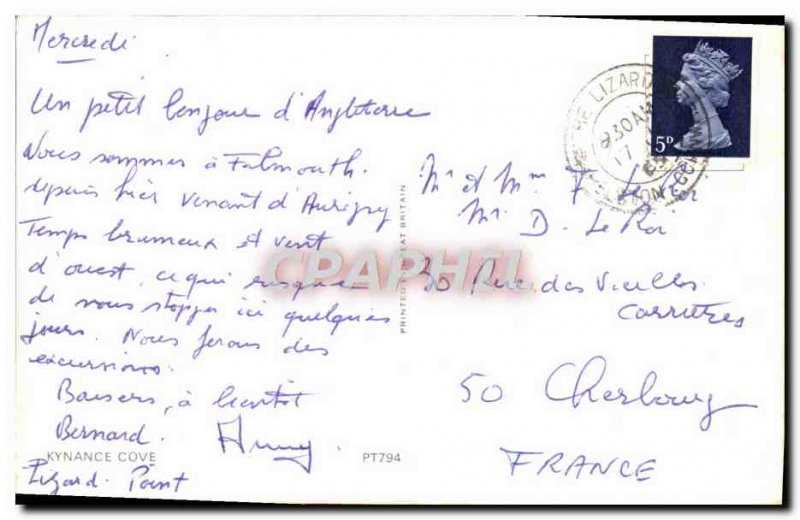 Mercredi
Un petit bonjour d'Angleterre
Nous sommes à Falmouth.
depuis hier venant d'Aurigny
Temps brumeux et vent
d'ouest, ce qui risque
de nous stopper ici quelques
jours. Nous ferons des
excursions.
Baisers, à bientôt
Bernard.
KYNANCE COVE
Lizard Point
PT794
PRINTED IN GREAT BRITAIN
CPAPHIL
THE LIZARD
930AM
17
HELSTON
5D
Mr et Mm F.
Mr D. Le Roi
30 Rue des Vieilles
Carrières
50 Cherbourg
FRANCE